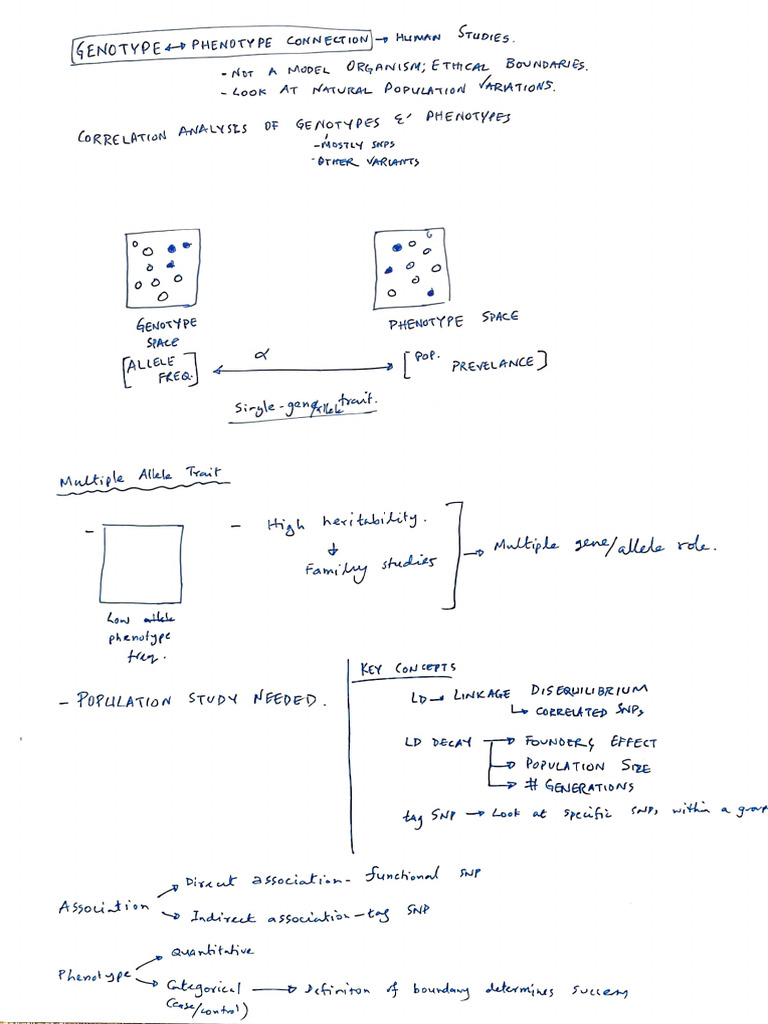 GENOTYPE ↔ PHENOTYPE CONNECTION → HUMAN STUDIES.
- NOT A MODEL ORGANISM; ETHICAL BOUNDARIES.
- LOOK AT NATURAL POPULATION VARIATIONS.
CORRELATION ANALYSES OF GENOTYPES & PHENOTYPES
- MOSTLY SNPS
- OTHER VARIANTS
GENOTYPE
SPACE
PHENOTYPE SPACE
[ALLELE
FREQ.]
α
[POP. PREVELANCE]
Single-gene/allele trait.
Multiple Allele Trait
- High heritability.
↓
Family studies
→ Multiple gene/allele role.
Low allele
phenotype
freq.
- POPULATION STUDY NEEDED.
KEY CONCEPTS
LD → LINKAGE DISEQUILIBRIUM
↳ CORRELATED SNPs
LD DECAY → FOUNDERS EFFECT
→ POPULATION SIZE
→ # GENERATIONS
tag SNP → Look at specific SNPs within a group
Association
→ Direct association - functional SNP
→ Indirect association - tag SNP
Phenotype
→ Quantitative
→ Categorical → Definiton of boundary determines success
(case/control)